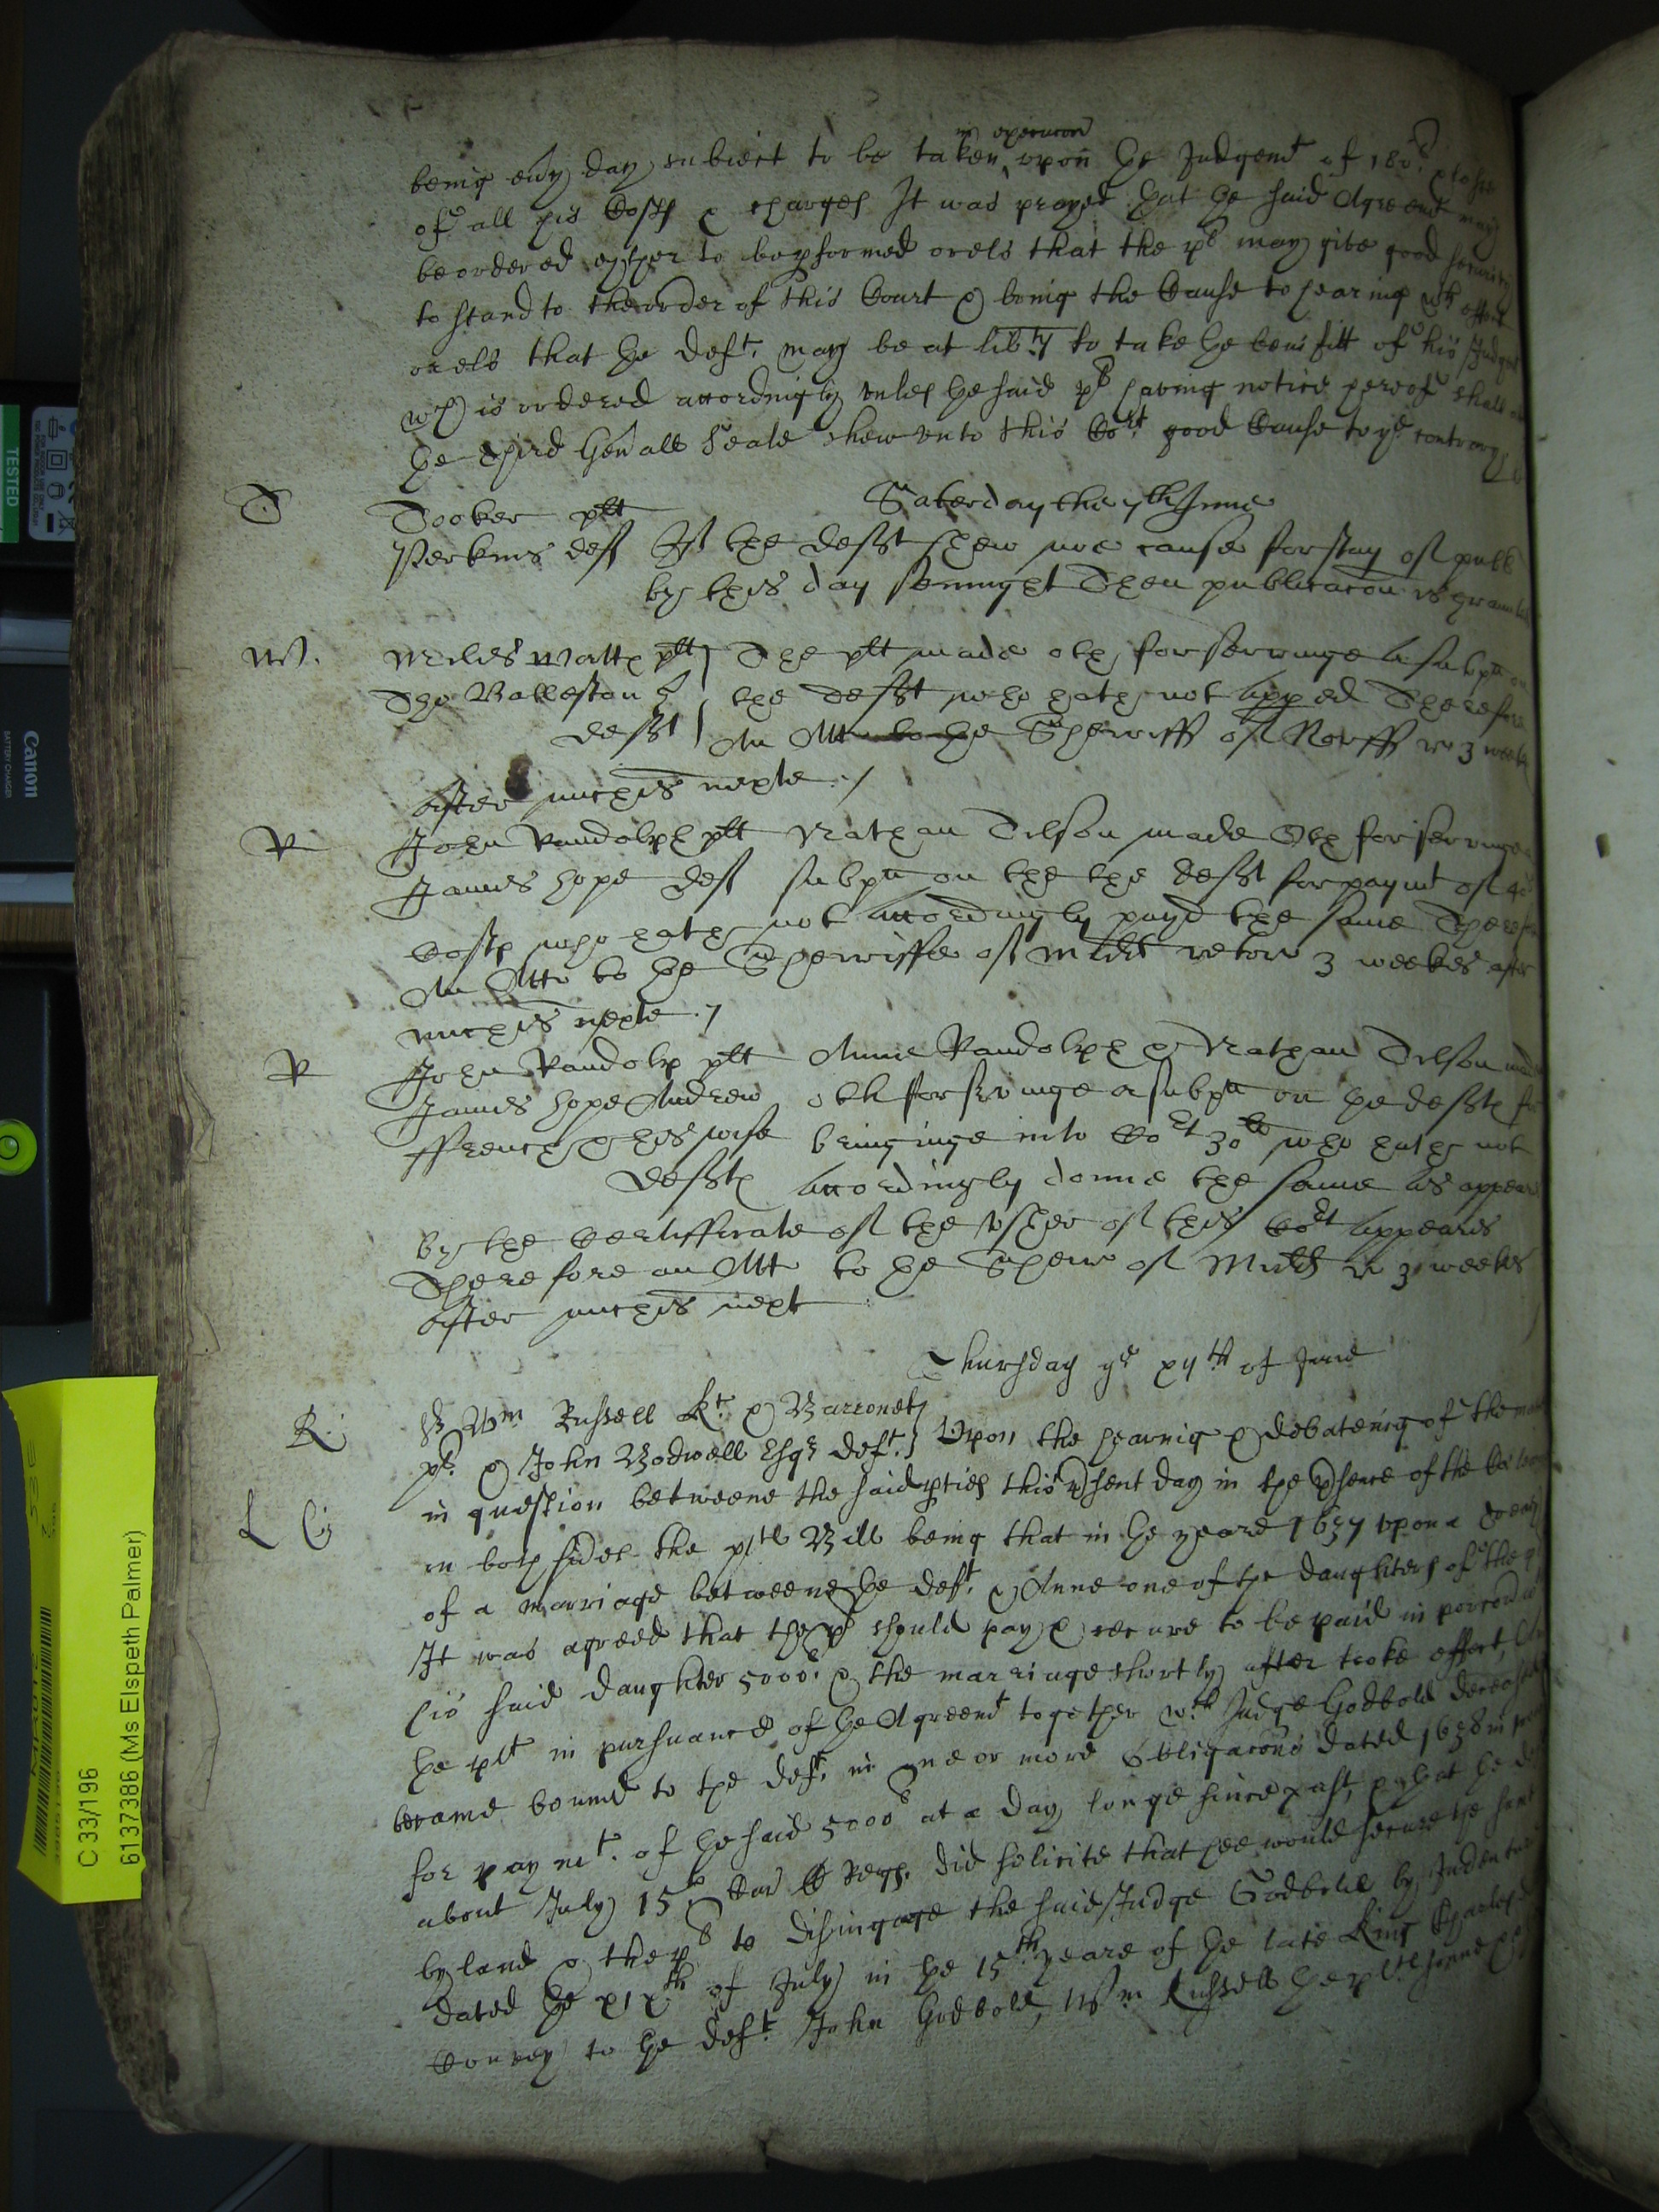 being evy day subiect to be taken in execucon upon the Judgemt of 180l
of all his Costs & charges It was prayed that the said Agreemt may
be ordered eyther to be pformed or els that the pl may give good security
to stand to the order of this Court & bring the Cause to hearing wth effect
or els that the Deft. may be at libty to take the benifitt of his Judgmt
wch is ordered accordingly unles the said pl having notice hereof shall
the third Genall Seale shew unto this Cort good Cause to ye contrary
T
Tooker plt
Saterday the 7th June
Perkins deft If the Defft shew noe cause for stay of publ
by this day sennight Then publicacon is graunted
W.
Miles Watts plt The plt made oth for servinge a subpa on
Tho Balleston
the Defft who hath not apped Therefore
Defft An Att to the Sherriff of Norff re 3 weekes
after michis nexte
R
John Randolph plt Nathan Tilson made Oth for servinge
James Hope Deft subpa on the the Defft for paymt of 40s
Costs who hath not accordingly payd the same Therefore
An Att to the Sherriffe of Middx retorn 3 weekes after
michis nexte
R
John Randolp plt Anne Randolph & Nathan Tilson made
James Hope Andrew oth for servinge a subpa on the deffts for
ffrench & his wife bringinge into Cort 30li who hath not
Deffts accordingly donne the same as appears
by the Certifficate of the Usher of this Cort appears
Therefore an Att to the Sherr of Midds re 3 weekes
after michis next
Thursday ye xijth of June
R
Sr Wm Russell Kt & Barronet
pl. & John Bodwell Esqr Deft. Upon the hearing & debateing of the matter
L C
in question betweene the said pties this psent day in the psence of the Councell
on both sides the plts Bill being that in the yeare 1637 upon a Treaty
of a marriage betweene the Deft. & Anne one of the daughters of the pl
It was agreed that the pl should pay & secure to be paid in porcon wth
his said daughter 5000l & the marriage shortly after tooke effect,
the plt in pursuance of the Agreemt together wth Judge Godbold deceased
became bound to the Deft. in one or more Obligacons dated 1638 in
for paymt. of the said 5000l at a day longe since past, & that the Deft
about July 15o Car Regs. did solicite that hee would secure the same
by land & the pl to disingage the said Judge Godbold by Indenture
dated the xixth of July in the 15th yeare of the late King Charles
Convey to the Deft. John Godbold, Wm Russell the plts sonne
TESTED
Canon
BATTERY CHARGER
C 33/196
6137386 (Ms Elspeth Palmer)